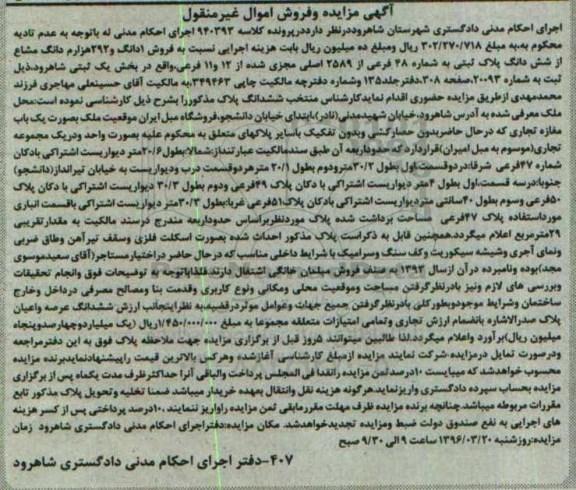 آگهی مزایده وفروش اموال غیرمنقول
اجرای احکام مدنی دادگستری شهرستان شاهروددرنظر دارددرپرونده کلاسه ۹۴۰۳۹۳ اجرای احکام مدنی له باتوجه به عدم تادیه
محکوم به،به مبلغ ۳۰۲/۲۷۰/۷۱۸ ریال ومبلغ ده میلیون ریال بابت هزینه اجرایی نسبت به فروش ۱دانگ و۲۹۲هزارم دانگ مشاع
از شش دانگ پلاک ثبتی به شماره ۴۸ فرعی از ۲۵۸۹ اصلی مجزی شده از ۱۲ و۱۱ فرعی،واقع در بخش یک ثبتی شاهرود،ذیل
ثبت به شماره ۲۰۰۹۳،صفحه ۳۰۸،دفترجلد۱۳۵ وشماره دفترچه مالکیت چاپی ۳۴۹۴۶۳،به مالکیت آقای حسینعلی مهاجری فرزند
محمدمهدی ازطریق مزایده حضوری اقدام نماید.کارشناس منتخب ششدانگ پلاک مذکوررا بشرح ذیل کارشناسی نموده است:محل
ملک معرفی شده به آدرس شاهرود،خیابان شهیدمدنی(نادر)،ابتدای خیابان دانشجو،فروشگاه مبل ایران موقعیت ملک بصورت یک باب
مغازه تجاری که درحال حاضربدون حصارکشی وبدون تفکیک باسایر پلاکهای متعلق به محکوم علیه بصورت واحد ودریک مجموعه
تجاری(موسوم به مبل امیران)قراردارد.که حدوداربعه آن طبق سندمالکیت عبارتنداز:شمالا:بطول۲۰/۶متر دیواریست اشتراکی بادکان
شماره ۴۷فرعی شرقا:دردوقسمت،اول بطول ۳۰/۲مترودوم بطول ۳۰/۱ مترهردوقسمت درب ودیواریست به خیابان تیرانداز(دانشجو)
جنوبا:درسه قسمت،اول بطول ۴متر دیواریست اشتراکی با دکان پلاک ۴۹فرعی ودوم بطول ۳۰/۳ دیواریست اشتراکی با دکان پلاک
۵۰فرعی وسوم بطول ۴۰سانتی متردیواریست اشتراکی بادکان پلاک۵۱فرعی غربا:بطول ۳۰/۳متر دیواریست اشتراکی باقسمت انباری
مورداستفاده پلاک ۴۷فرعی مساحت برداشت شده پلاک موردنظربراساس حدوداربعه مندرج درسند مالکیت به مقدارتقریبی
۲۹مترمربع اعلام میگردد.همچنین قابل به ذکراست پلاک مذکور احداث شده بصورت اسکلت فلزی وسقف تیرآهن وطاق ضربی
ونمای آجری وشیشه سیکوریت وکف سنگ وسرامیک با شرایط داخلی مناسب که درحال حاضر دراختیارمستاجر(آقای سعیدموسوی
مجد)بوده ونامبرده در آن ازسال ۱۳۹۲ به صنف فروش مبلمان خانگی اشتغال دارند.فلذاباتوجه به توضیحات فوق وانجام تحقیقات
وبررسی های لازم ونیز بادرنظرگرفتن مساحت وموقعیت محلی ومکانی ونوع کاربری وقدمت بنا ومصالح مصرفی درداخل وخارج
ساختمان وشرایط موجودوبطورکلی بادرنظرگرفتن جمیع جهات وعوامل موثردرقضیه،به نظراینجانب ارزش ششدانگ عرصه واعیان
پلاک صدرالاشاره بانضمام ارزش تجاری وتمامی امتیازات متعلقه مجموعا به مبلغ ۱/۴۵۰/۰۰۰/۰۰۰ریال (یک میلیاردوچهارصدوپنجاه
میلیون ریال)برآورد واعلام میگردد.لذا طالبین میتوانند ۵روز قبل از برگزاری مزایده جهت ملاحظه پلاک فوق به این دفترمراجعه
ودرصورت تمایل درمزایده شرکت نمایند مزایده ازمبلغ کارشناسی آغازشده وهرکس بالاترین قیمت راپیشنهادنمایدبرنده مزایده
محسوب خواهدشد که میبایست ۱۰درصدثمن مزایده رانقدا فی المجلس پرداخت والباقی آنرا حداکثرظرف مدت یکماه پس از برگزاری
مزایده بحساب سپرده دادگستری واریزنماید.هرگونه هزینه نقل وانتقال بعهده خریدار میباشد ضمنا تخلیه وتحویل پلاک مذکور تابع
مقررات مربوطه میباشد.چنانچه برنده مزایده ظرف مهلت مقررمابقی ثمن مزایده راواریز ننمایند ۱۰درصد پرداختی پس از کسر هزینه
های اجرایی به نفع صندوق دولت ضبط ومزایده تجدیدخواهدشد. مکان مزایده:دفتراجرای احکام مدنی دادگستری شاهرود زمان
مزایده:روزشنبه ۱۳۹۶/۰۳/۲۰ ساعت ۹ الی ۹/۳۰ صبح
۴۰۷-دفتر اجرای احکام مدنی دادگستری شاهرود